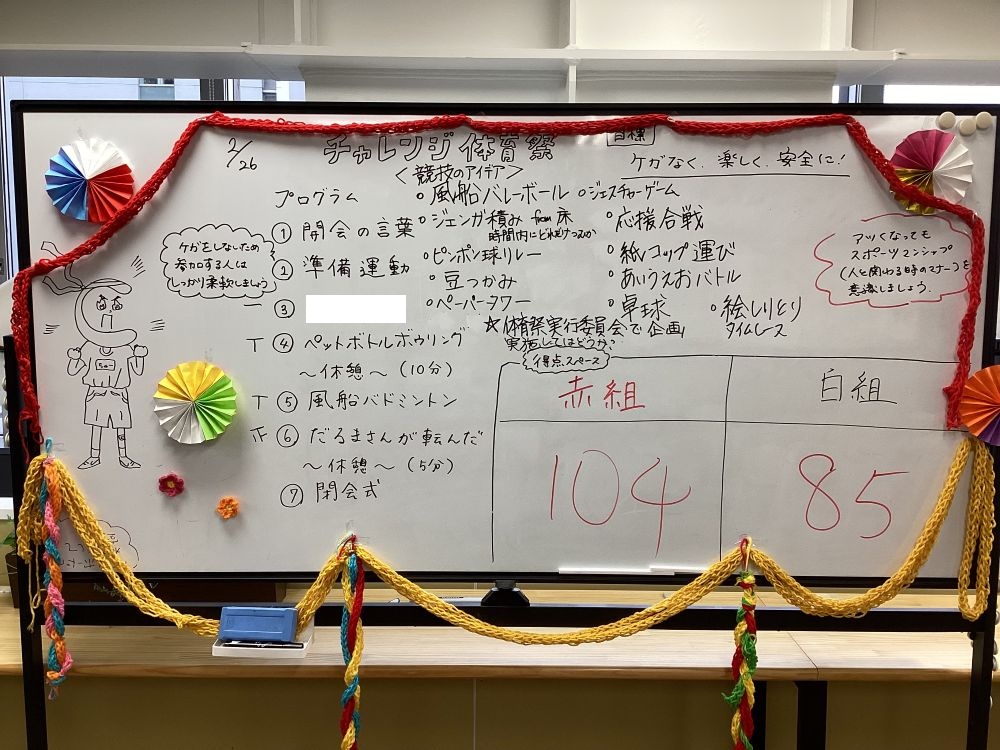 2/26
チャレンジ体育祭
目標
ケガなく、楽しく、安全に!
<競技のアイデア>
プログラム
① 開会の言葉
② 準備運動
③
T ④ ペットボトルボウリング
〜休憩〜(10分)
T ⑤ 風船バドミントン
正 ⑥ だるまさんが転んだ
〜休憩〜(5分)
⑦ 閉会式
ケガをしないため
参加する人は
しっかり柔軟しましょう
○風船バレーボール
○ジェスチャーゲーム
○ジェンガ積み from 床
時間内にどれだけつめるか
○ピンポン球リレー
○豆つかみ
○ペーパータワー
○応援合戦
○紙コップ運び
○あいうえおバトル
○卓球
○絵しりとり
タイムレース
☆体育祭実行委員会で企画
実施してはどうか?
アツくなっても
スポーツマンシップ
(人と関わる時のマナー)を
意識しましょう。
得点スペース
赤組
白組
104
85